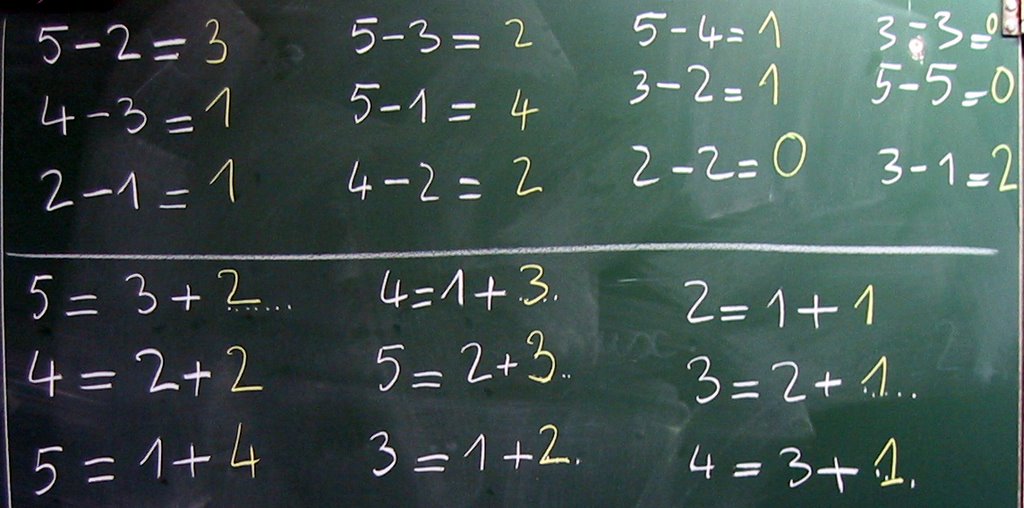 5-2=3 5-3=2 5-4=1 3-3=0
4-3=1 5-1=4 3-2=1 5-5=0
2-1=1 4-2=2 2-2=0 3-1=2
5=3+2...... 4=1+3.. 2=1+1
4=2+2 5=2+3.. 3=2+1....
5=1+4 3=1+2. 4=3+1.